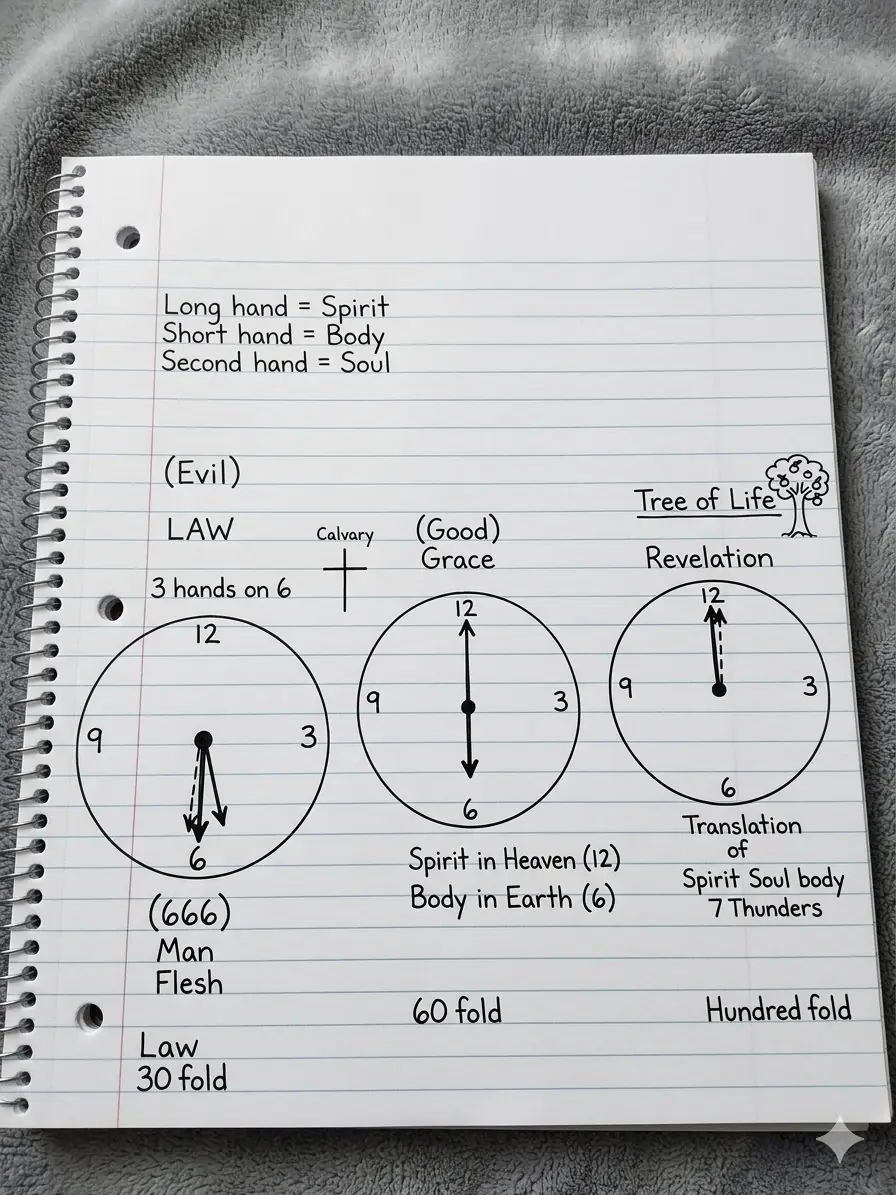 Long hand = Spirit
Short hand = Body
Second hand = Soul
(Evil)
LAW
3 hands on 6
12
9
3
6
(666)
Man
Flesh
Law
30 fold
Calvary
(Good)
Grace
12
9
3
6
Spirit in Heaven (12)
Body in Earth (6)
60 fold
Tree of Life
Revelation
12
9
3
6
Translation
of
Spirit Soul body
7 Thunders
Hundred fold